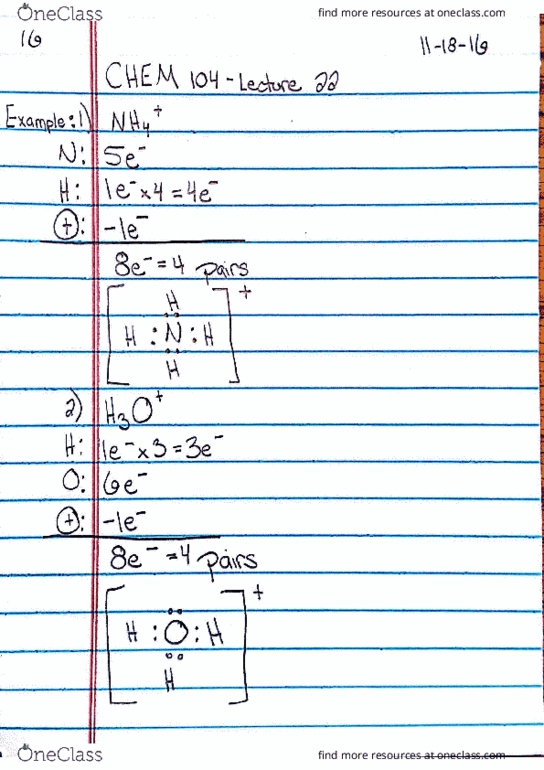 OneClass
find more resources at oneclass.com
16
11-18-16
CHEM 104 - Lecture 22
Example: 1) NH₄⁺
N: 5e⁻
H: 1e⁻ x 4 = 4e⁻
⊕: -1e⁻
8e⁻ = 4 pairs
[ H ]⁺
H : N : H
H
2) H₃O⁺
H: 1e⁻ x 3 = 3e⁻
O: 6e⁻
⊕: -1e⁻
8e⁻ = 4 pairs
[ ]⁺
H : O : H
H
OneClass
find more resources at oneclass.com